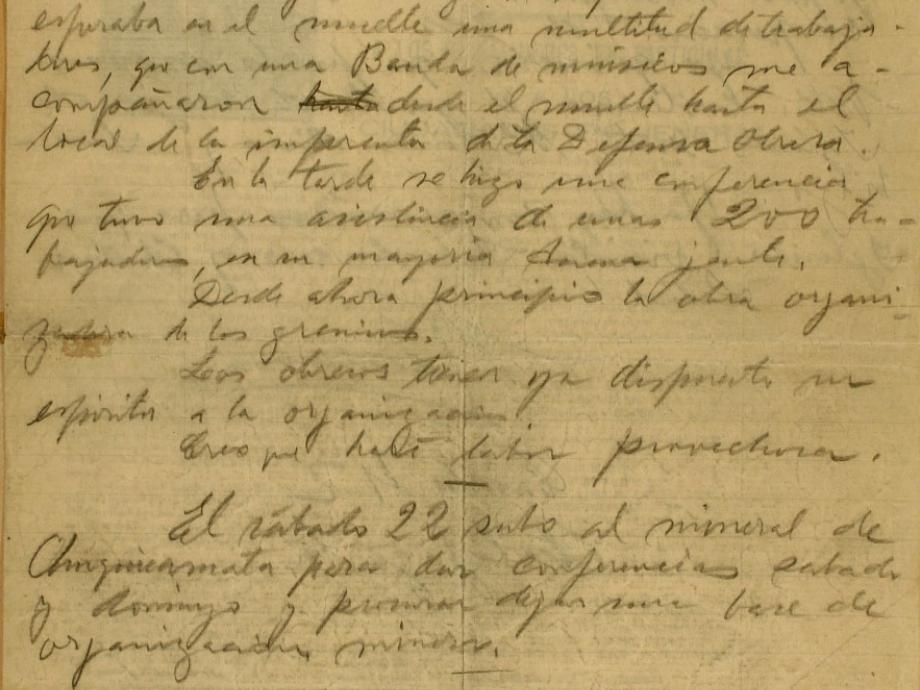 esperaba en el muelle una multitud de trabaja-
dores, que con una Banda de músicos me a-
compañaron hasta desde el muelle hasta el
local de la imprenta de la Defensa Obrera.
En la tarde se hizo una conferencia
que tuvo una asistencia de unas 200 tra-
bajadores, en su mayoría buena jente.
Desde ahora principio la obra organi-
zadora de los gremios.
Los obreros tienen ya dispuesto su
espíritu a la organizacion
Creo que haré labor provechosa.
El sábado 22 subo al mineral de
Chuquicamata para dar conferencias sabado
y domingo y procurar dejar una base de
organizacion minera.